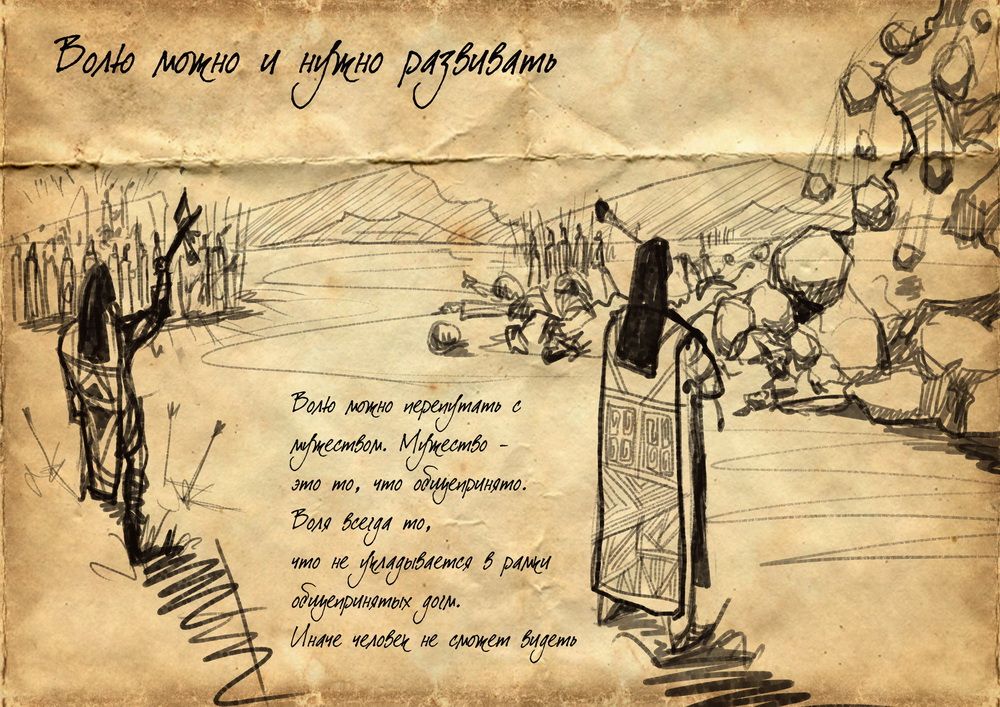 Волю можно и нужно развивать
Волю можно перепутать с
мужеством. Мужество -
это то, что общепринято.
Воля всегда то,
что не укладывается в рамки
общепринятых догм.
Иначе человек не сможет видеть